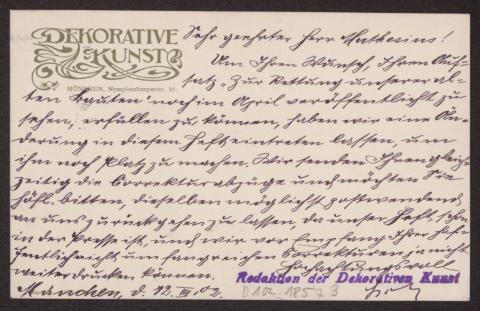 DEKORATIVE
KUNST
MÜNCHEN, Nymphenburgerstr. 86.
Sehr geehrter Herr Muthesius!
Um Ihren Wunsch, Ihren Auf-
satz „Zur Rettung unserer al-
ten Bauten" noch im April veröffentlicht zu
sehen, erfüllen zu können, haben wir eine Än-
derung in diesem Heft eintreten lassen, um
ihm noch Platz zu machen. Wir senden Ihnen gleich-
zeitig die Correkturabzüge und möchten Sie
höfl. bitten, dieselben möglichst postwendend
an uns zurückgehen zu lassen, da unser Heft schon
in der Presse ist, und wir vor Empfang Ihrer hof-
fentlich nicht umfangreichen Correkturen ja nicht
weiterdrucken können.
Hochachtungsvoll
Redaktion der Dekorativen Kunst
München, d. 12. III 02.
D 102-1857 B